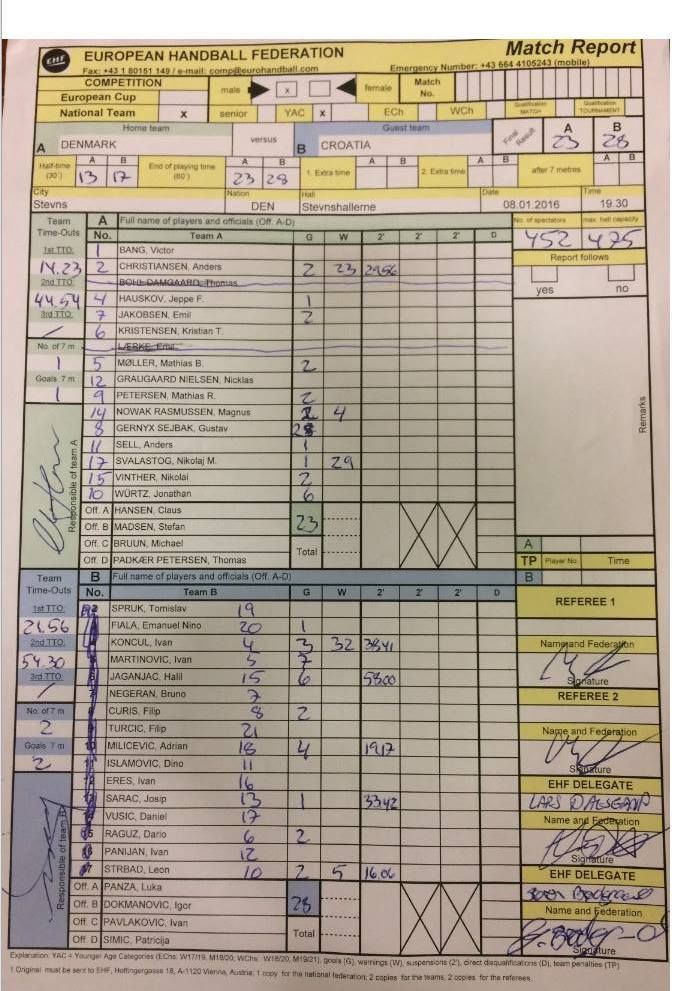 EHF
EUROPEAN HANDBALL FEDERATION Match Report
Fax: +43 1 80151 149 / e-mail: comp@eurohandball.com Emergency Number: +43 664 4105243 (mobile)
COMPETITION males x female Match No.
European Cup
National Team x senior YAC x ECh WCh Qualification MATCH Qualification TOURNAMENT
Home team versus Guest team Final Result A B
A DENMARK B CROATIA 23 28
Half-time (30') A 13 B 17 End of playing time (60') A 23 B 28 1. Extra time A B 2. Extra time A B after 7 metres A B
City Nation Hall Date Time
Stevns DEN Stevnshallerne 08.01.2016 19.30
Team Time-Outs A Full name of players and officials (Off. A-D) No. of spectators max. hall capacity
No. Team A G W 2' 2' 2' D 452 475
1st TTO: 1 BANG, Victor Report follows
14.23 2 CHRISTIANSEN, Anders 2 23 29.56
2nd TTO: BOHL DAMGAARD, Thomas yes no
44.54 4 HAUSKOV, Jeppe F. 1
3rd TTO: 7 JAKOBSEN, Emil 2
/ 6 KRISTENSEN, Kristian T.
No. of 7 m LÆRKE, Emil
1 5 MØLLER, Mathias B. 2
Goals 7 m 12 GRAUGAARD NIELSEN, Nicklas
1 9 PETERSEN, Mathias R. 2
14 NOWAK RASMUSSEN, Magnus 4
8 GERNYX SEJBAK, Gustav
11 SELL, Anders 1
17 SVALASTOG, Nikolaj M. 1 29
15 VINTHER, Nikolai 2
10 WÜRTZ, Jonathan 6
Responsible of team A
Remarks
Off. A HANSEN, Claus 23
Off. B MADSEN, Stefan
Off. C BRUUN, Michael Total A
Off. D PADKÆR PETERSEN, Thomas TP Player No Time
Team Time-Outs B Full name of players and officials (Off. A-D) B
No. Team B G W 2' 2' 2' D REFEREE 1
1st TTO: SPRUK, Tomislav 19
21.56 FIALA, Emanuel Nino 20 1
2nd TTO: KONCUL, Ivan 4 3 32 38.41 Name and Federation
54.30 MARTINOVIC, Ivan 5 7
3rd TTO: JAGANJAC, Halil 15 6 58.00 Signature
/ NEGERAN, Bruno 7 REFEREE 2
No. of 7 m CURIS, Filip 8 2
2 TURCIC, Filip 21 Name and Federation
Goals 7 m MILICEVIC, Adrian 18 4 19.17
2 ISLAMOVIC, Dino 11 Signature
ERES, Ivan 16 EHF DELEGATE
SARAC, Josip 13 1 33.42 LARS
VUSIC, Daniel 17 Name and Federation
RAGUZ, Dario 6 2
PANIJAN, Ivan 12 Signature
STRBAD, Leon 10 2 5 16.06 EHF DELEGATE
Responsible of team B
Off. A PANZA, Luka 28
Off. B DOKMANOVIC, Igor Name and Federation
Off. C PAVLAKOVIC, Ivan Total
Off. D SIMIC, Patricija Signature
Explanation: YAC = Younger Age Categories (EChs: W17/19, M18/20, WChs: W18/20, M19/21), goals (G), warnings (W), suspensions (2'), direct disqualifications (D), team penalties (TP)
1 Original must be sent to EHF, Hoffingergasse 18, A-1120 Vienna, Austria; 1 copy for the national federation; 2 copies for the teams, 2 copies for the referees.